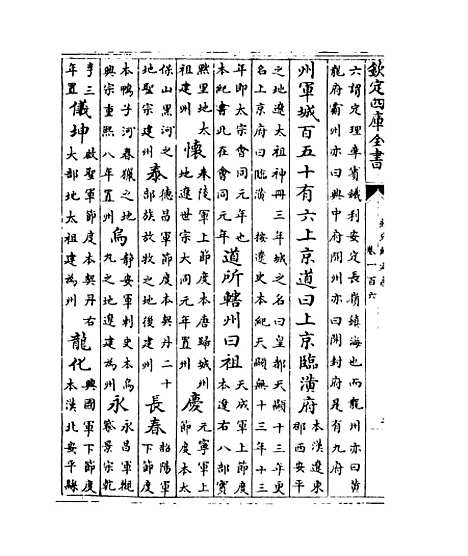 欽定四庫全書
卷一百六
六謂定理率賓鐵利安定長嶺鎮海也而龍州亦曰黄
龍府霸州亦曰興中府開州亦曰開封府是有九府
州軍城百五十有六上京道曰上京臨潢府本漢遼東郡西安平
之地遼太祖神冊三年城之名曰皇都天顯十三年更
名上京府曰臨潢 按遼史本紀天顯無十三年十三
年即太宗會同元年也
本紀書此在會同元年道所轄州曰祖天成軍上節度本遼右八部寳
㸃里地太祖建州懷奉陵軍上節度本唐歸城州地遼世宗大同元年置州慶元寧軍上節度本太
保山黑河之地聖宗建州泰德昌軍節度本契丹二十部族放牧之地後建州長春韶陽軍下節度
本鴨子河春獵之地興宗重熙八年置州烏静安軍刺史本烏丸之地遼建為州永永昌軍觀察景宗乾
亨三年置儀坤啟聖軍節度本契丹右大部地太祖建為州龍化興國軍下節度本漢北安平縣